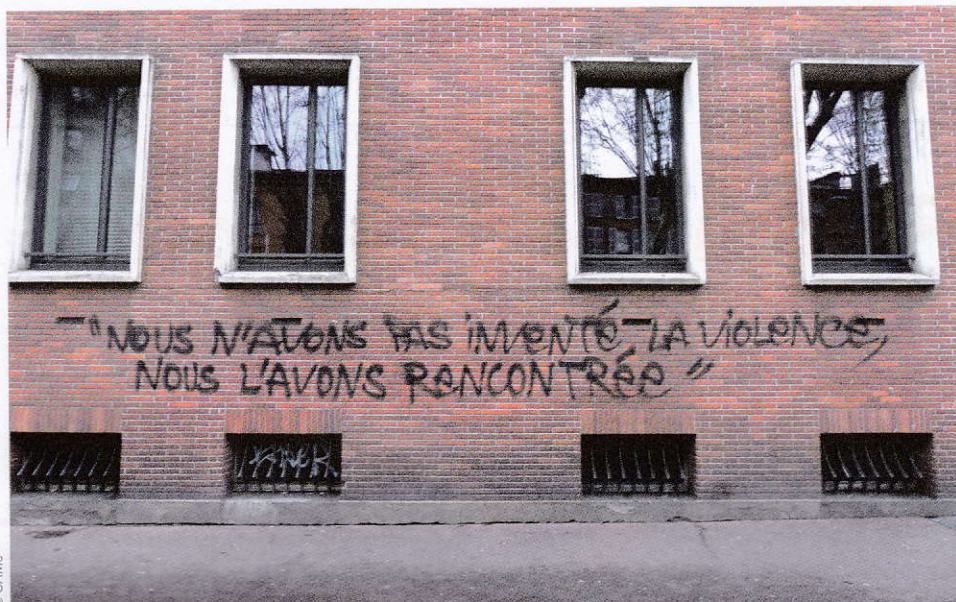 "NOUS N'AVONS PAS iNVENTÉ LA ViOLENCE,
NOUS L'AVONS RENCONTRÉE"